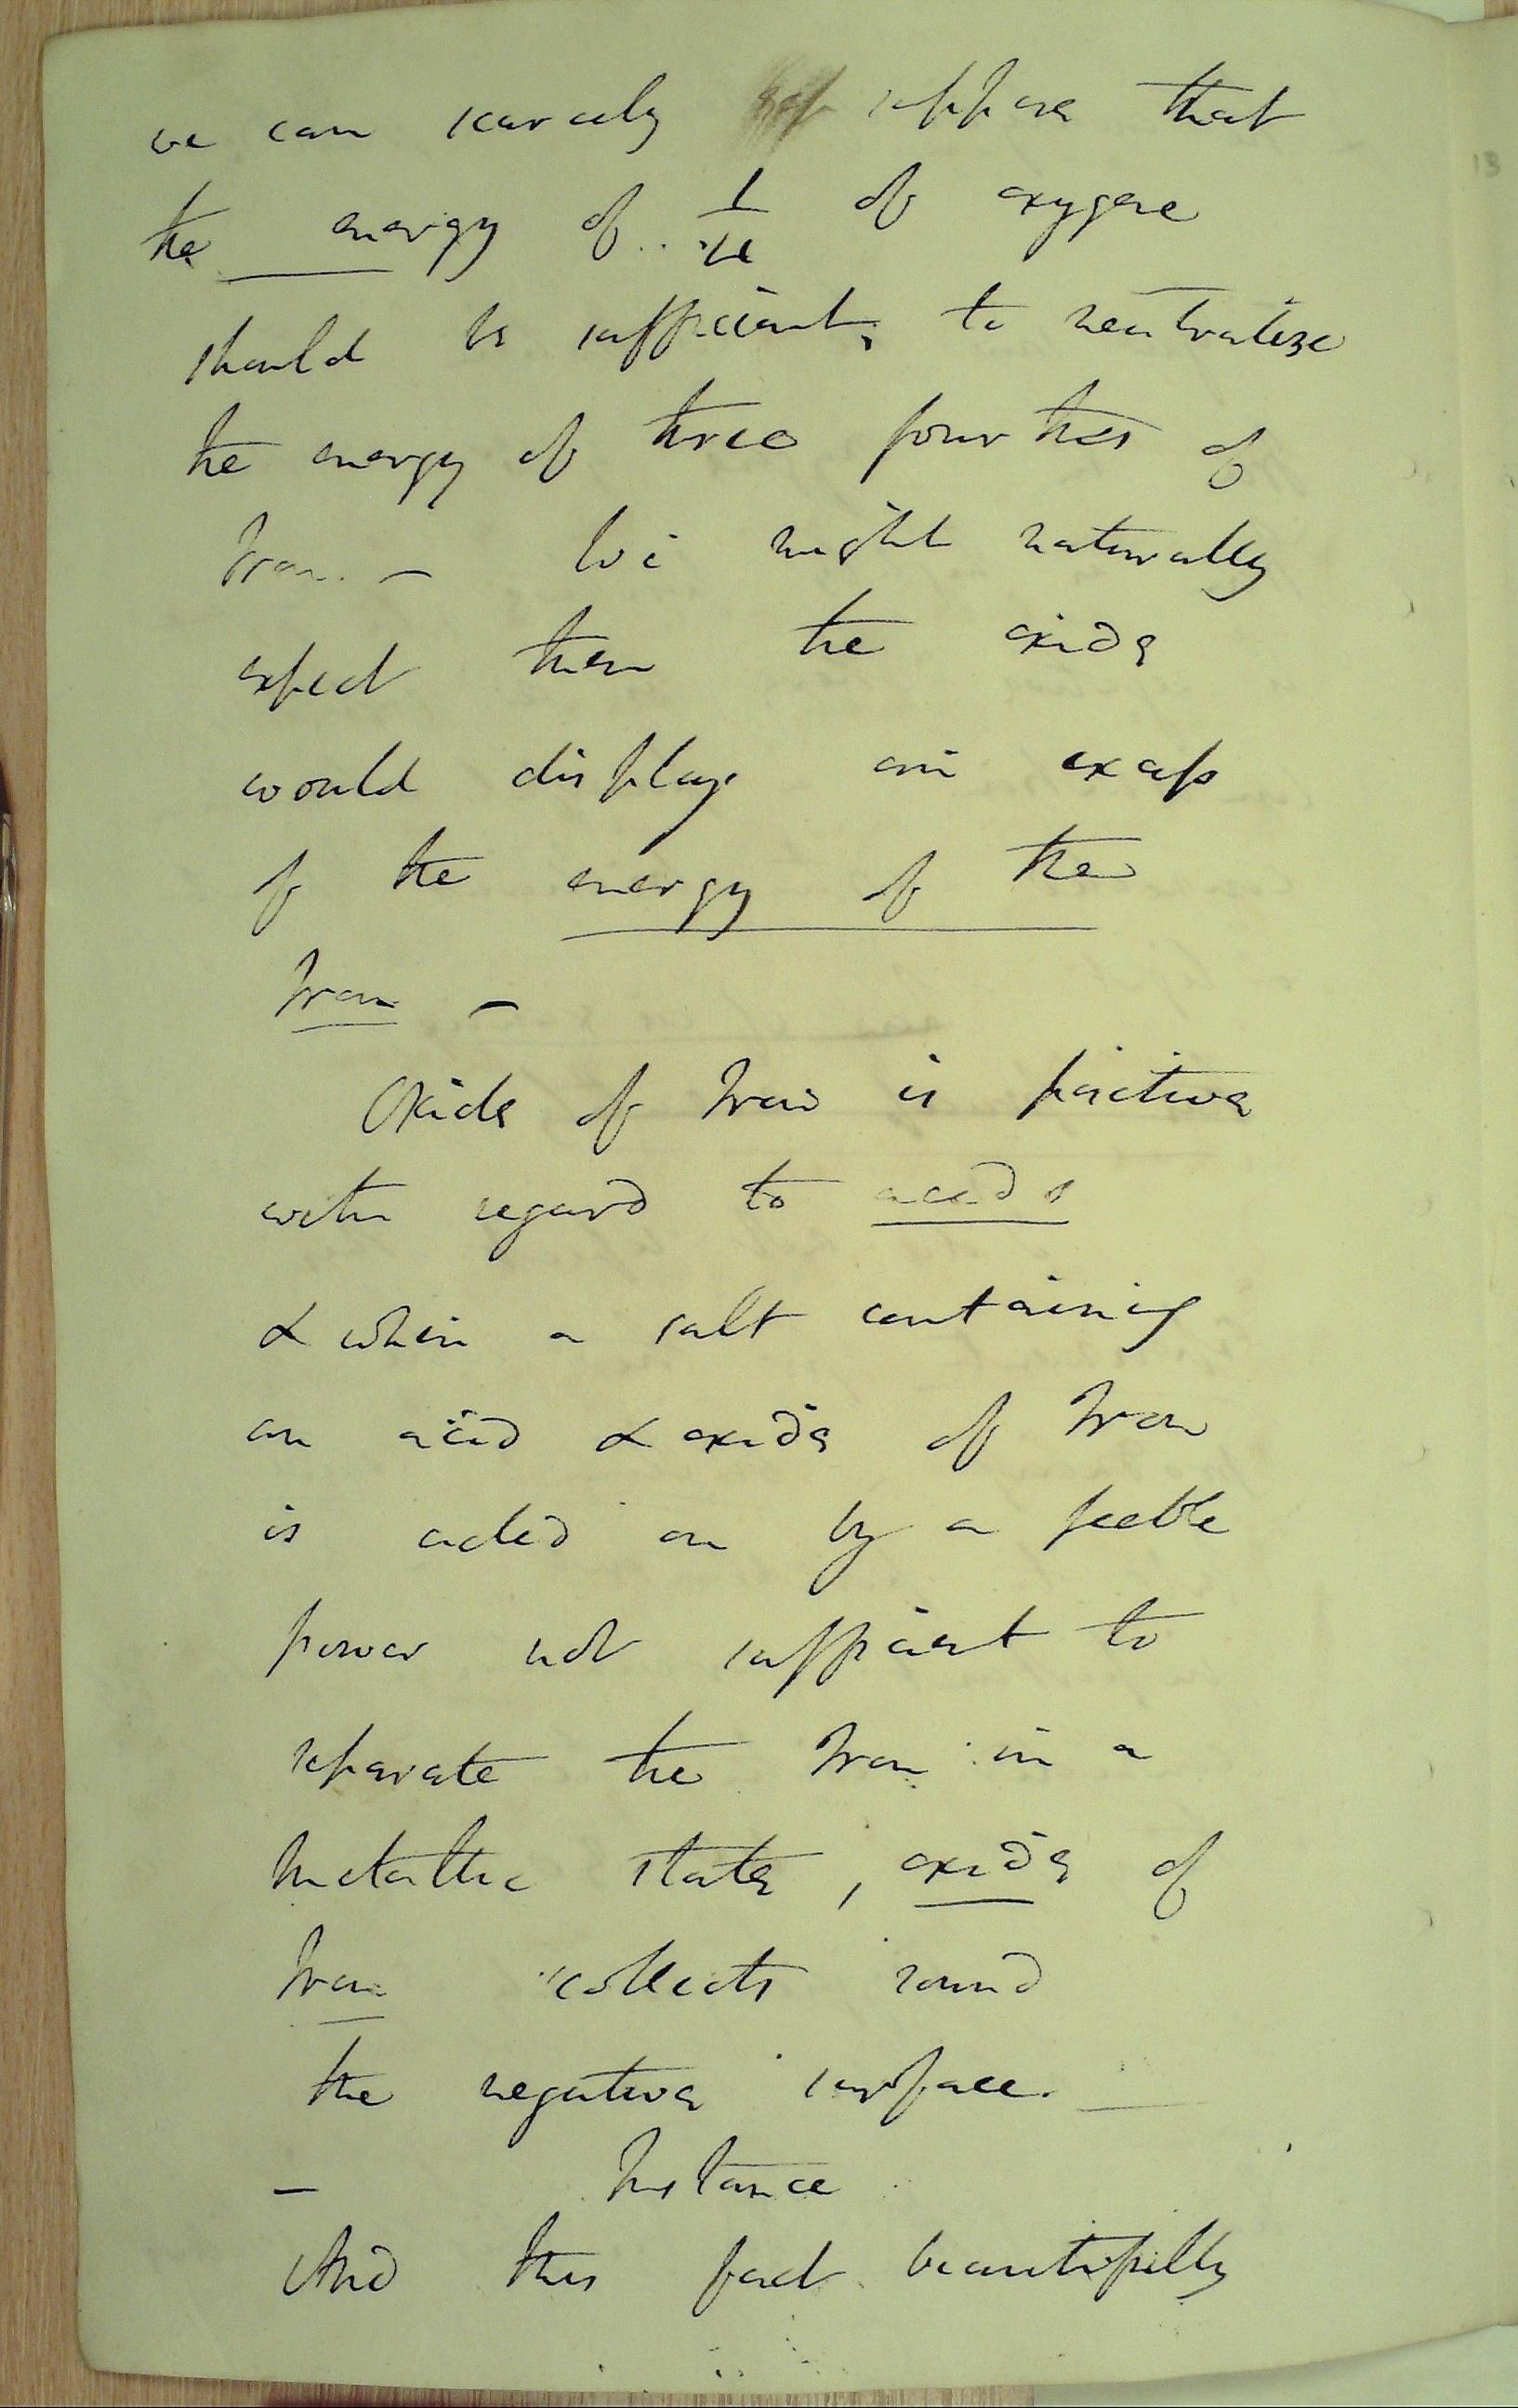 we can scarcely suppose that
the energy of 1/4 of oxygene
should be sufficient, to neutralize
the energy of three fourths of
Iron. — We might naturally
expect then the oxide
would display an excess
of the energy of the
Iron —
Oxide of Iron is positive
with regard to acids
& when a salt containing
an acid & oxide of Iron
is acted on by a feeble
power not sufficient to
separate the Iron in a
metallic state, oxide of
Iron collects round
the negative surface. —
— Instance
And this fact beautifully